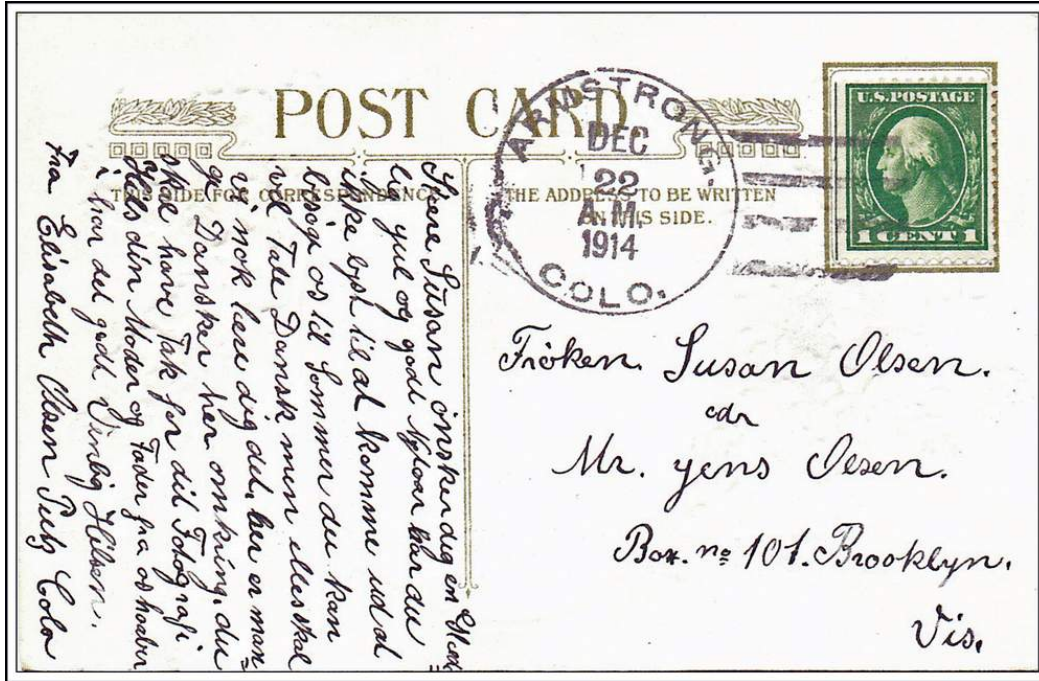 POST CARD
THIS SIDE FOR CORRESPONDENCE
THE ADDRESS TO BE WRITTEN
ON THIS SIDE.
ARMSTRONG.
DEC
22
A.M.
1914
COLO.
U.S. POSTAGE
1 CENT 1
Kære Susan önsker dig en Glæd=
lig yul og godt Nytaar har du
ikke lyst til at komme ud at
besöge os til Sommer du kan
vel Tale Dansk men ellers skal
vi nok lære dig det, her er man=
ge Dansker her omkring. du
skal have Tak for dit Fotografi
Hils din Moder og Fader fra os haaber
i har det godt Venlig Hilsen.
Fra Elisabeth Olsen Colo
Fröken. Susan Olsen.
Mr. yens Olsen.
Box. no 101. Brooklyn.
Vis.